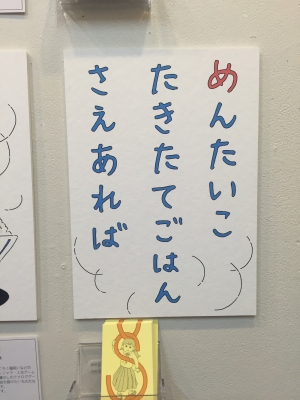 めんたいこ
たきたてごはん
さえあれば